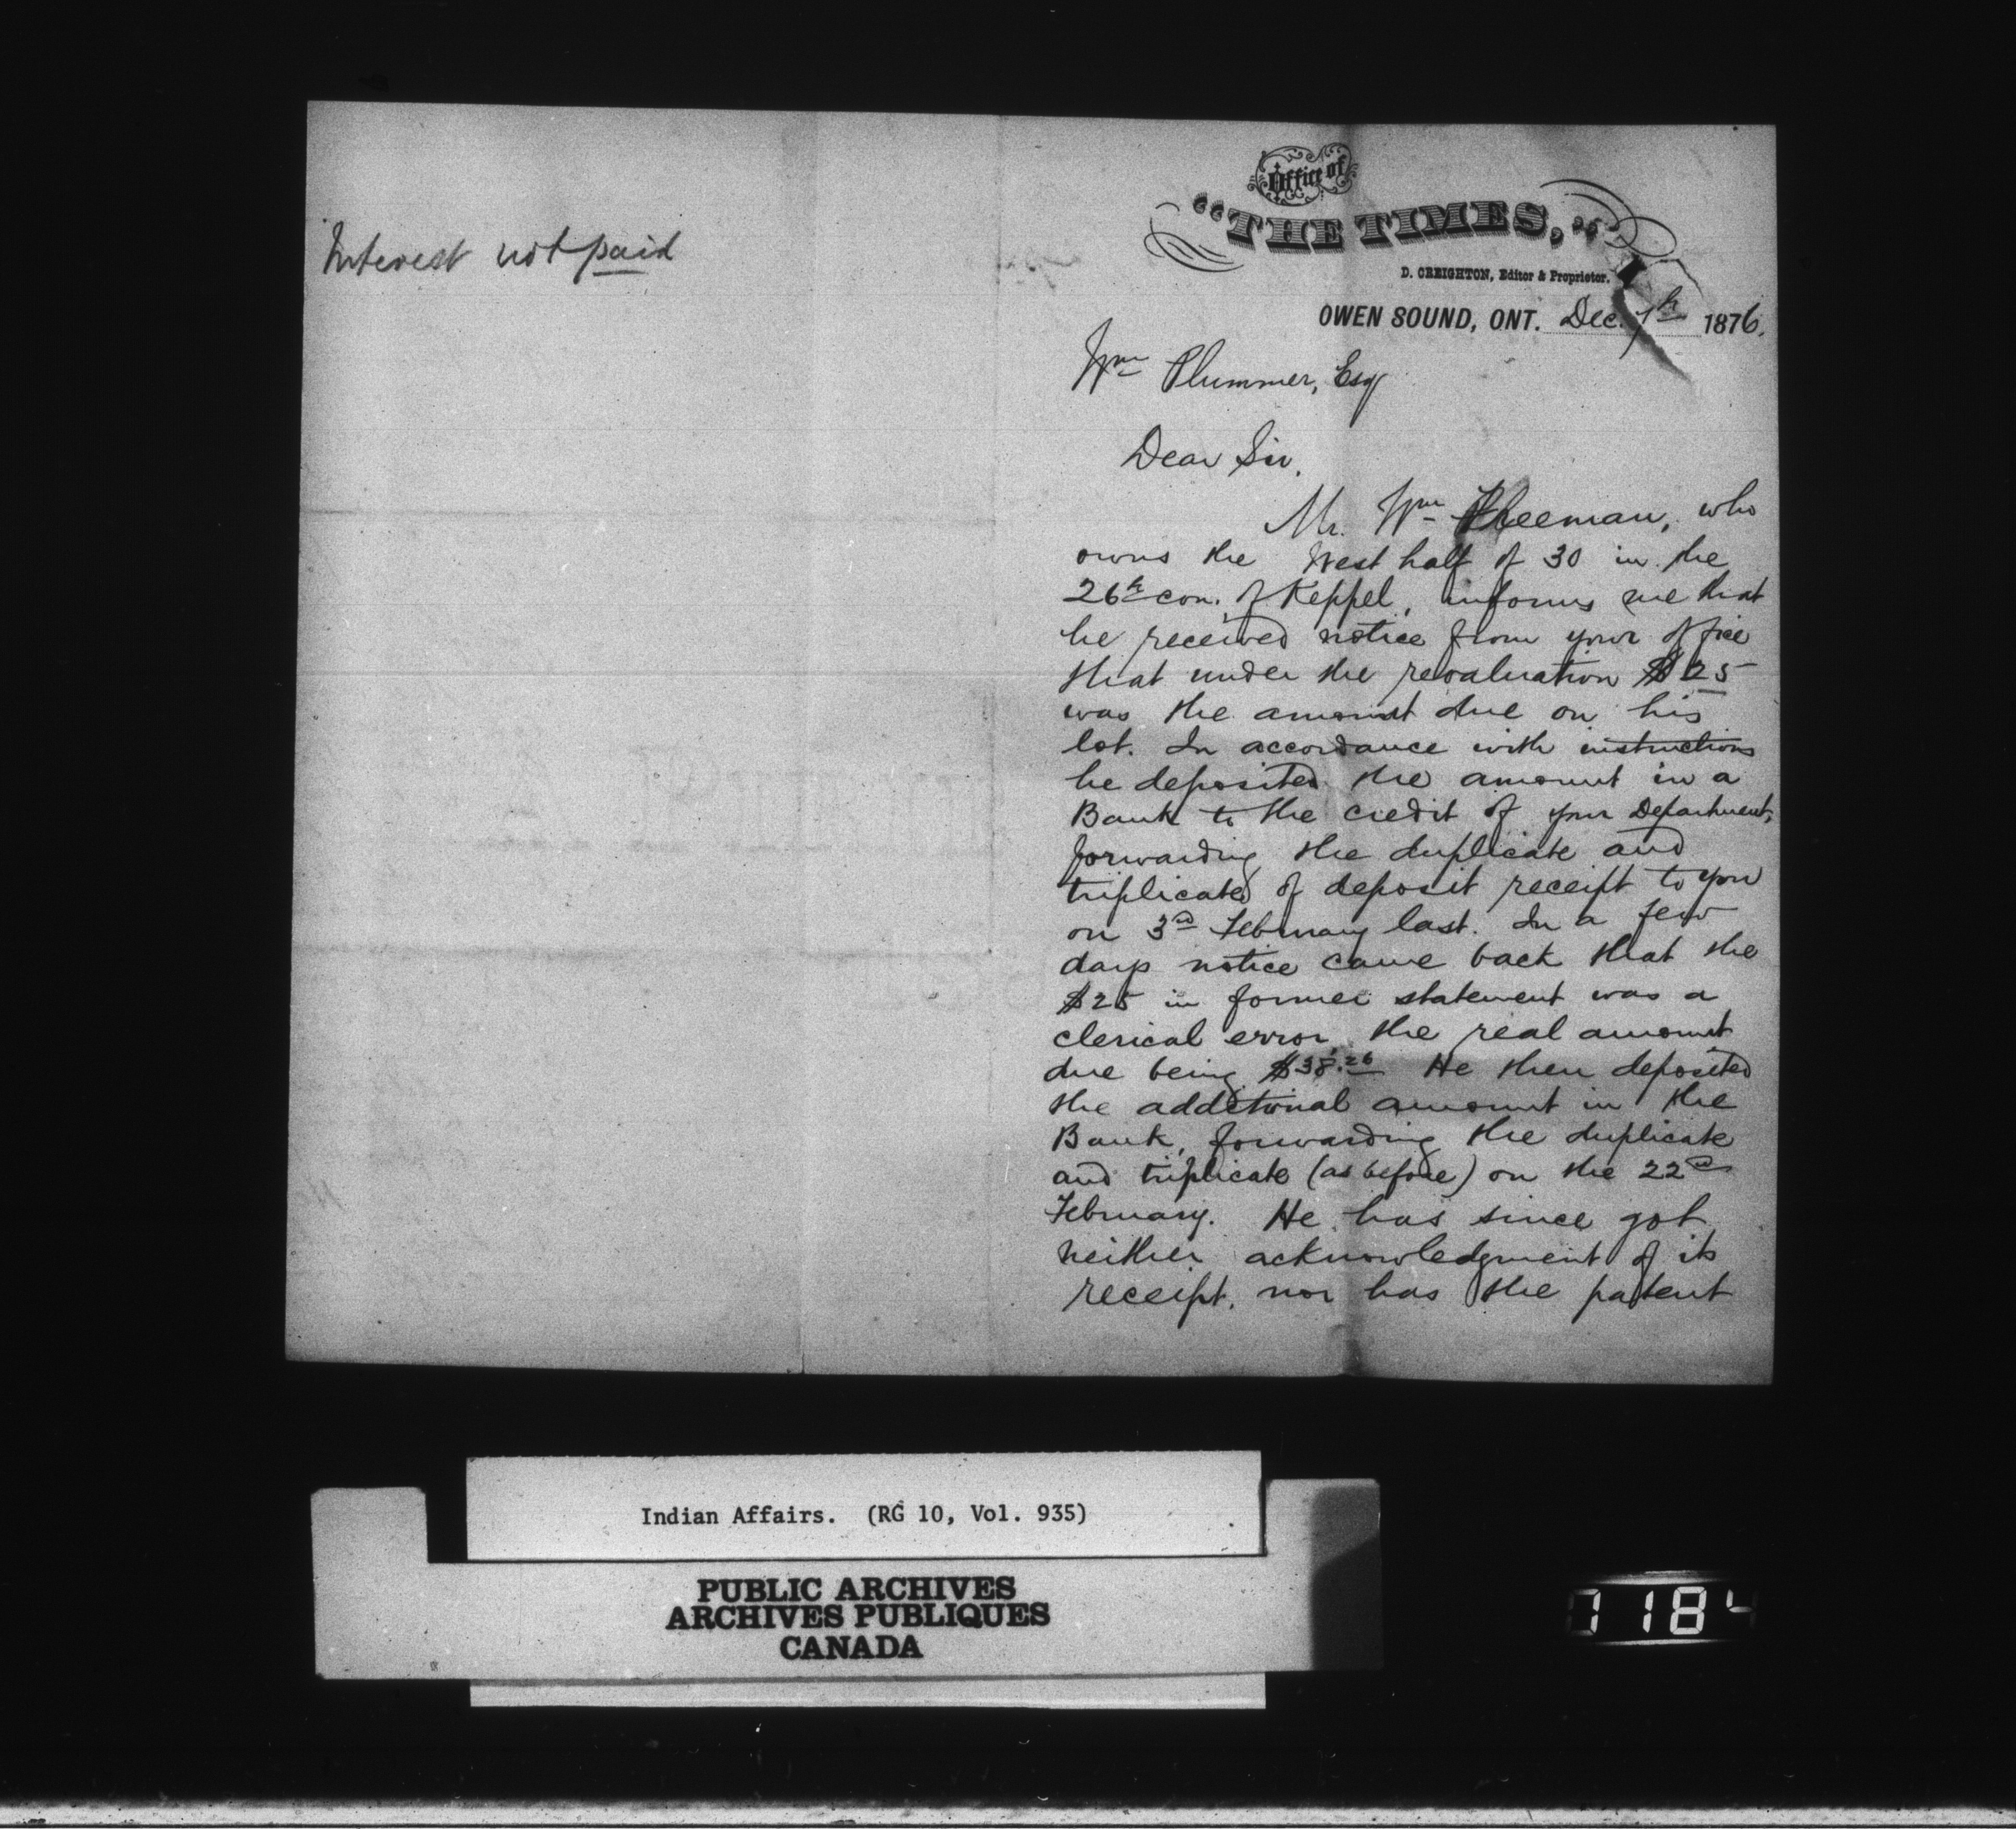 Interest not paid
Office of
"THE TIMES,"
D. CREIGHTON, Editor & Proprietor.
OWEN SOUND, ONT. Dec. 7th 1876.
Wm Plummer, Esq
Dear Sir,
Mr. Wm who
owns the West half of 30 in the
26th con. of Keppel, informs me that
he received notice from your office
that under the revaluation $25
was the amount due on his
lot. In accordance with instructions
he deposited the amount in a
Bank to the credit of your Department,
forwarding the duplicate and
triplicate of deposit receipt to you
on 3rd February last. In a few
days notice came back that the
$25 in former statement was a
clerical error, the real amount
due being $38.26 He then deposited
the additional amount in the
Bank, forwarding the duplicate
and triplicate (as before) on the 22nd
February. He has since got
neither acknowledgment of its
receipt, nor has the patent
Indian Affairs. (RG 10, Vol. 935)
PUBLIC ARCHIVES
ARCHIVES PUBLIQUES
CANADA
1184